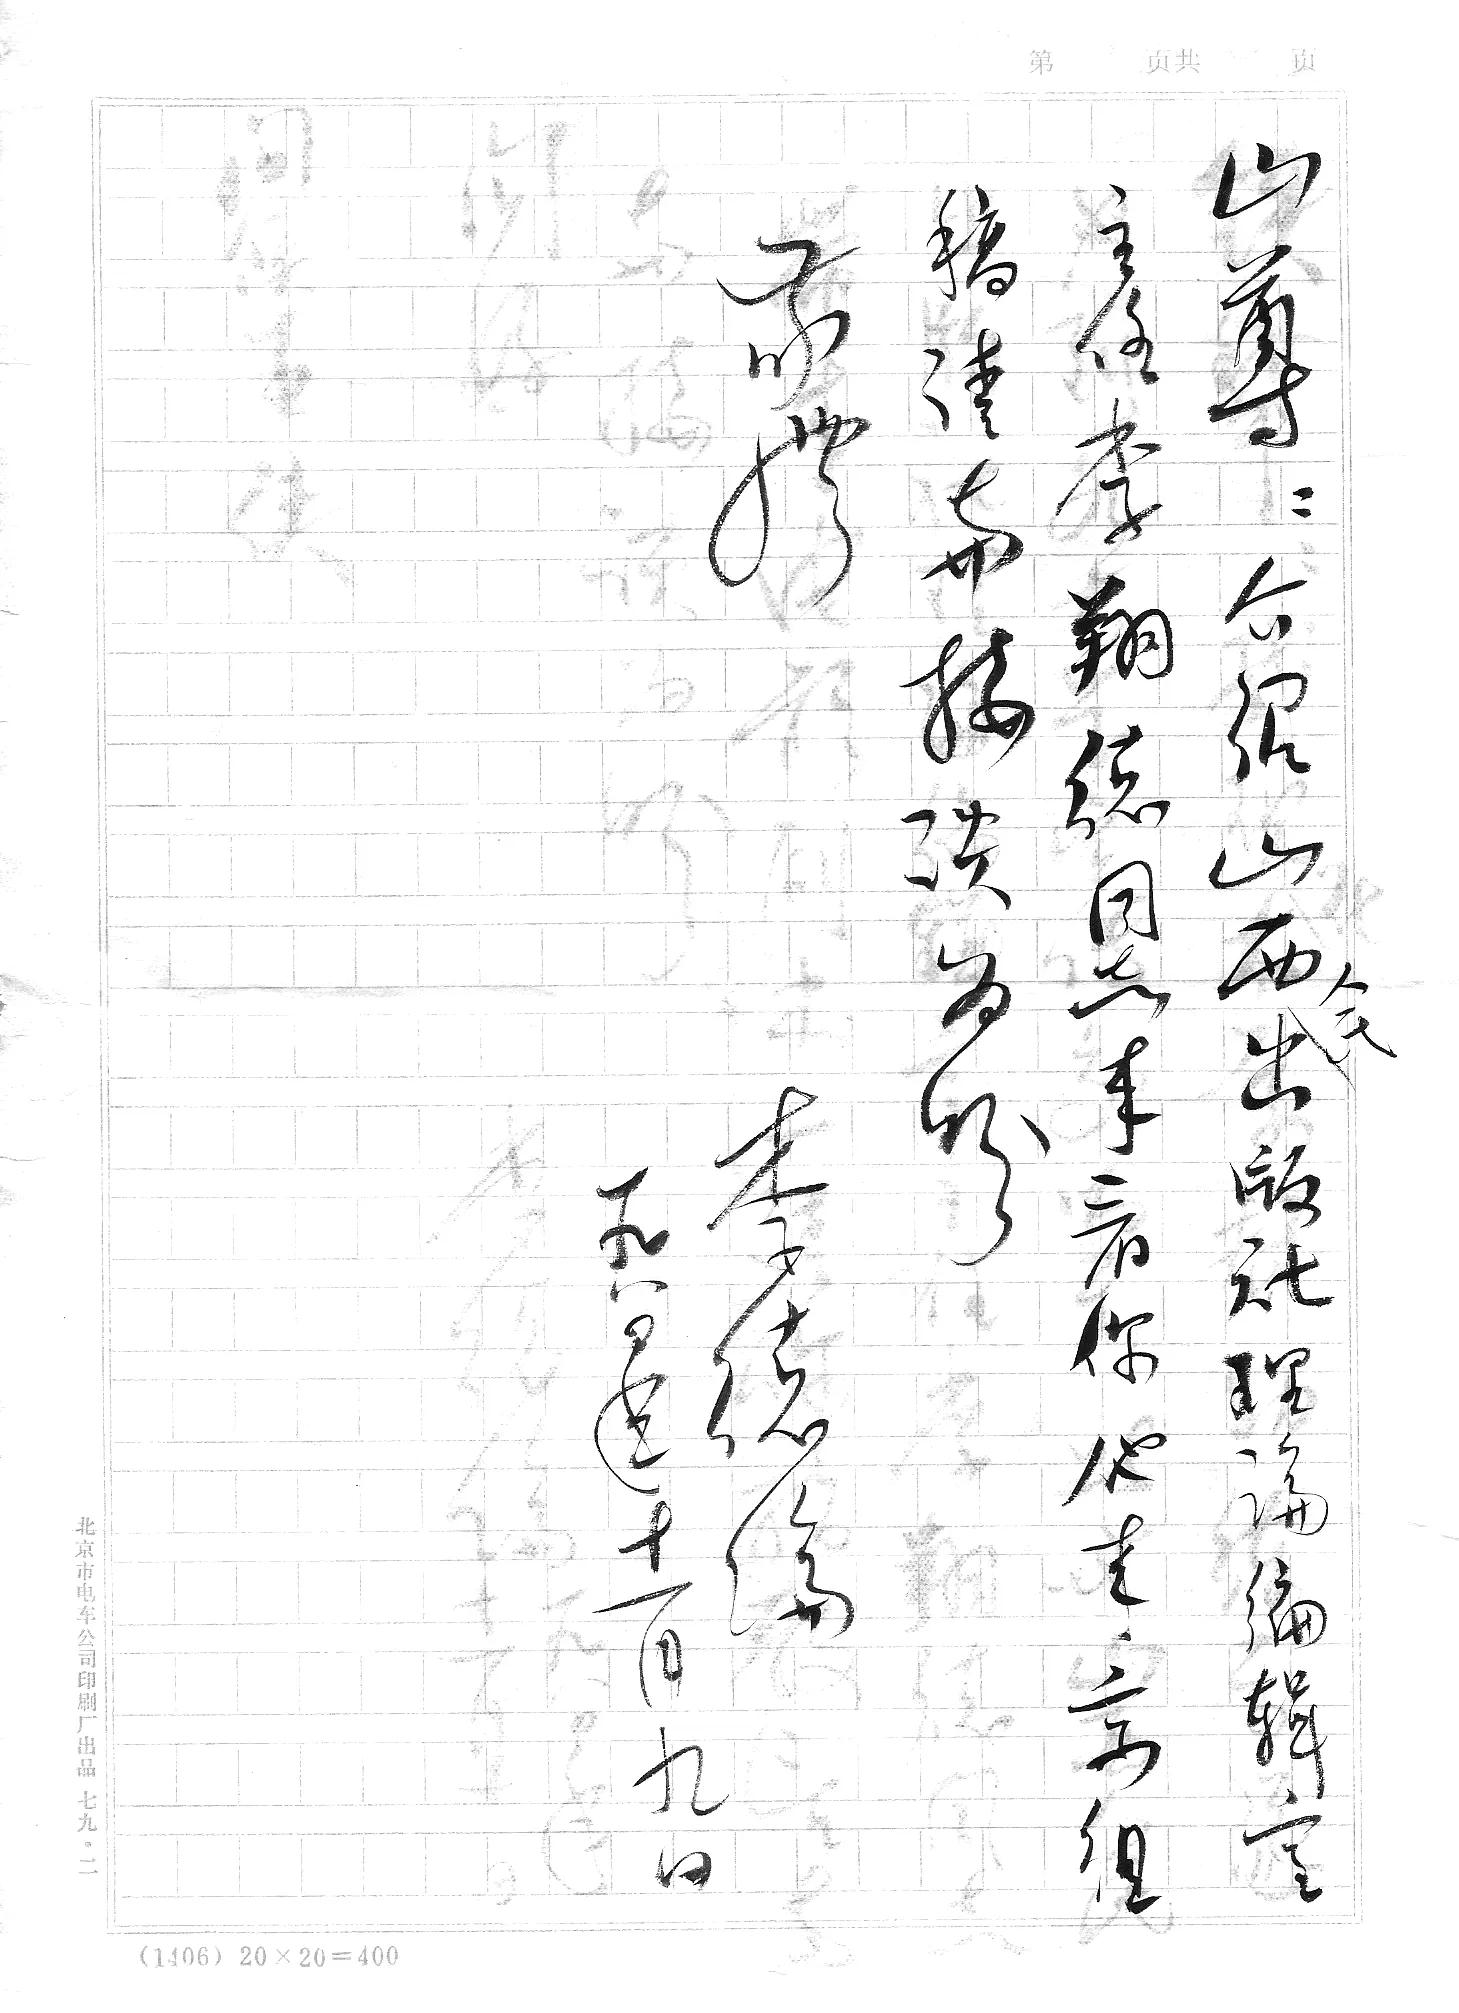 第 页共 页
山尊：介绍山西人民出版社理论编辑室
主任李翔德同志来看你他来京组
稿请与接谈为盼
敬礼
李德伦
一九八年十一月九日
北京市电车公司印刷厂出品 七九·二
(1406) 20×20=400